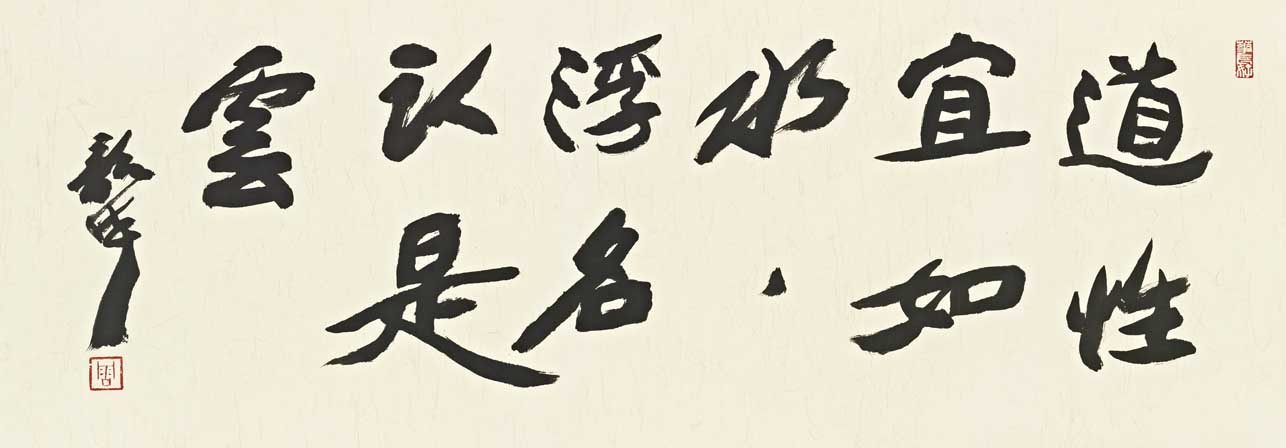 道性
宜如
水、
浮名
认是
雲